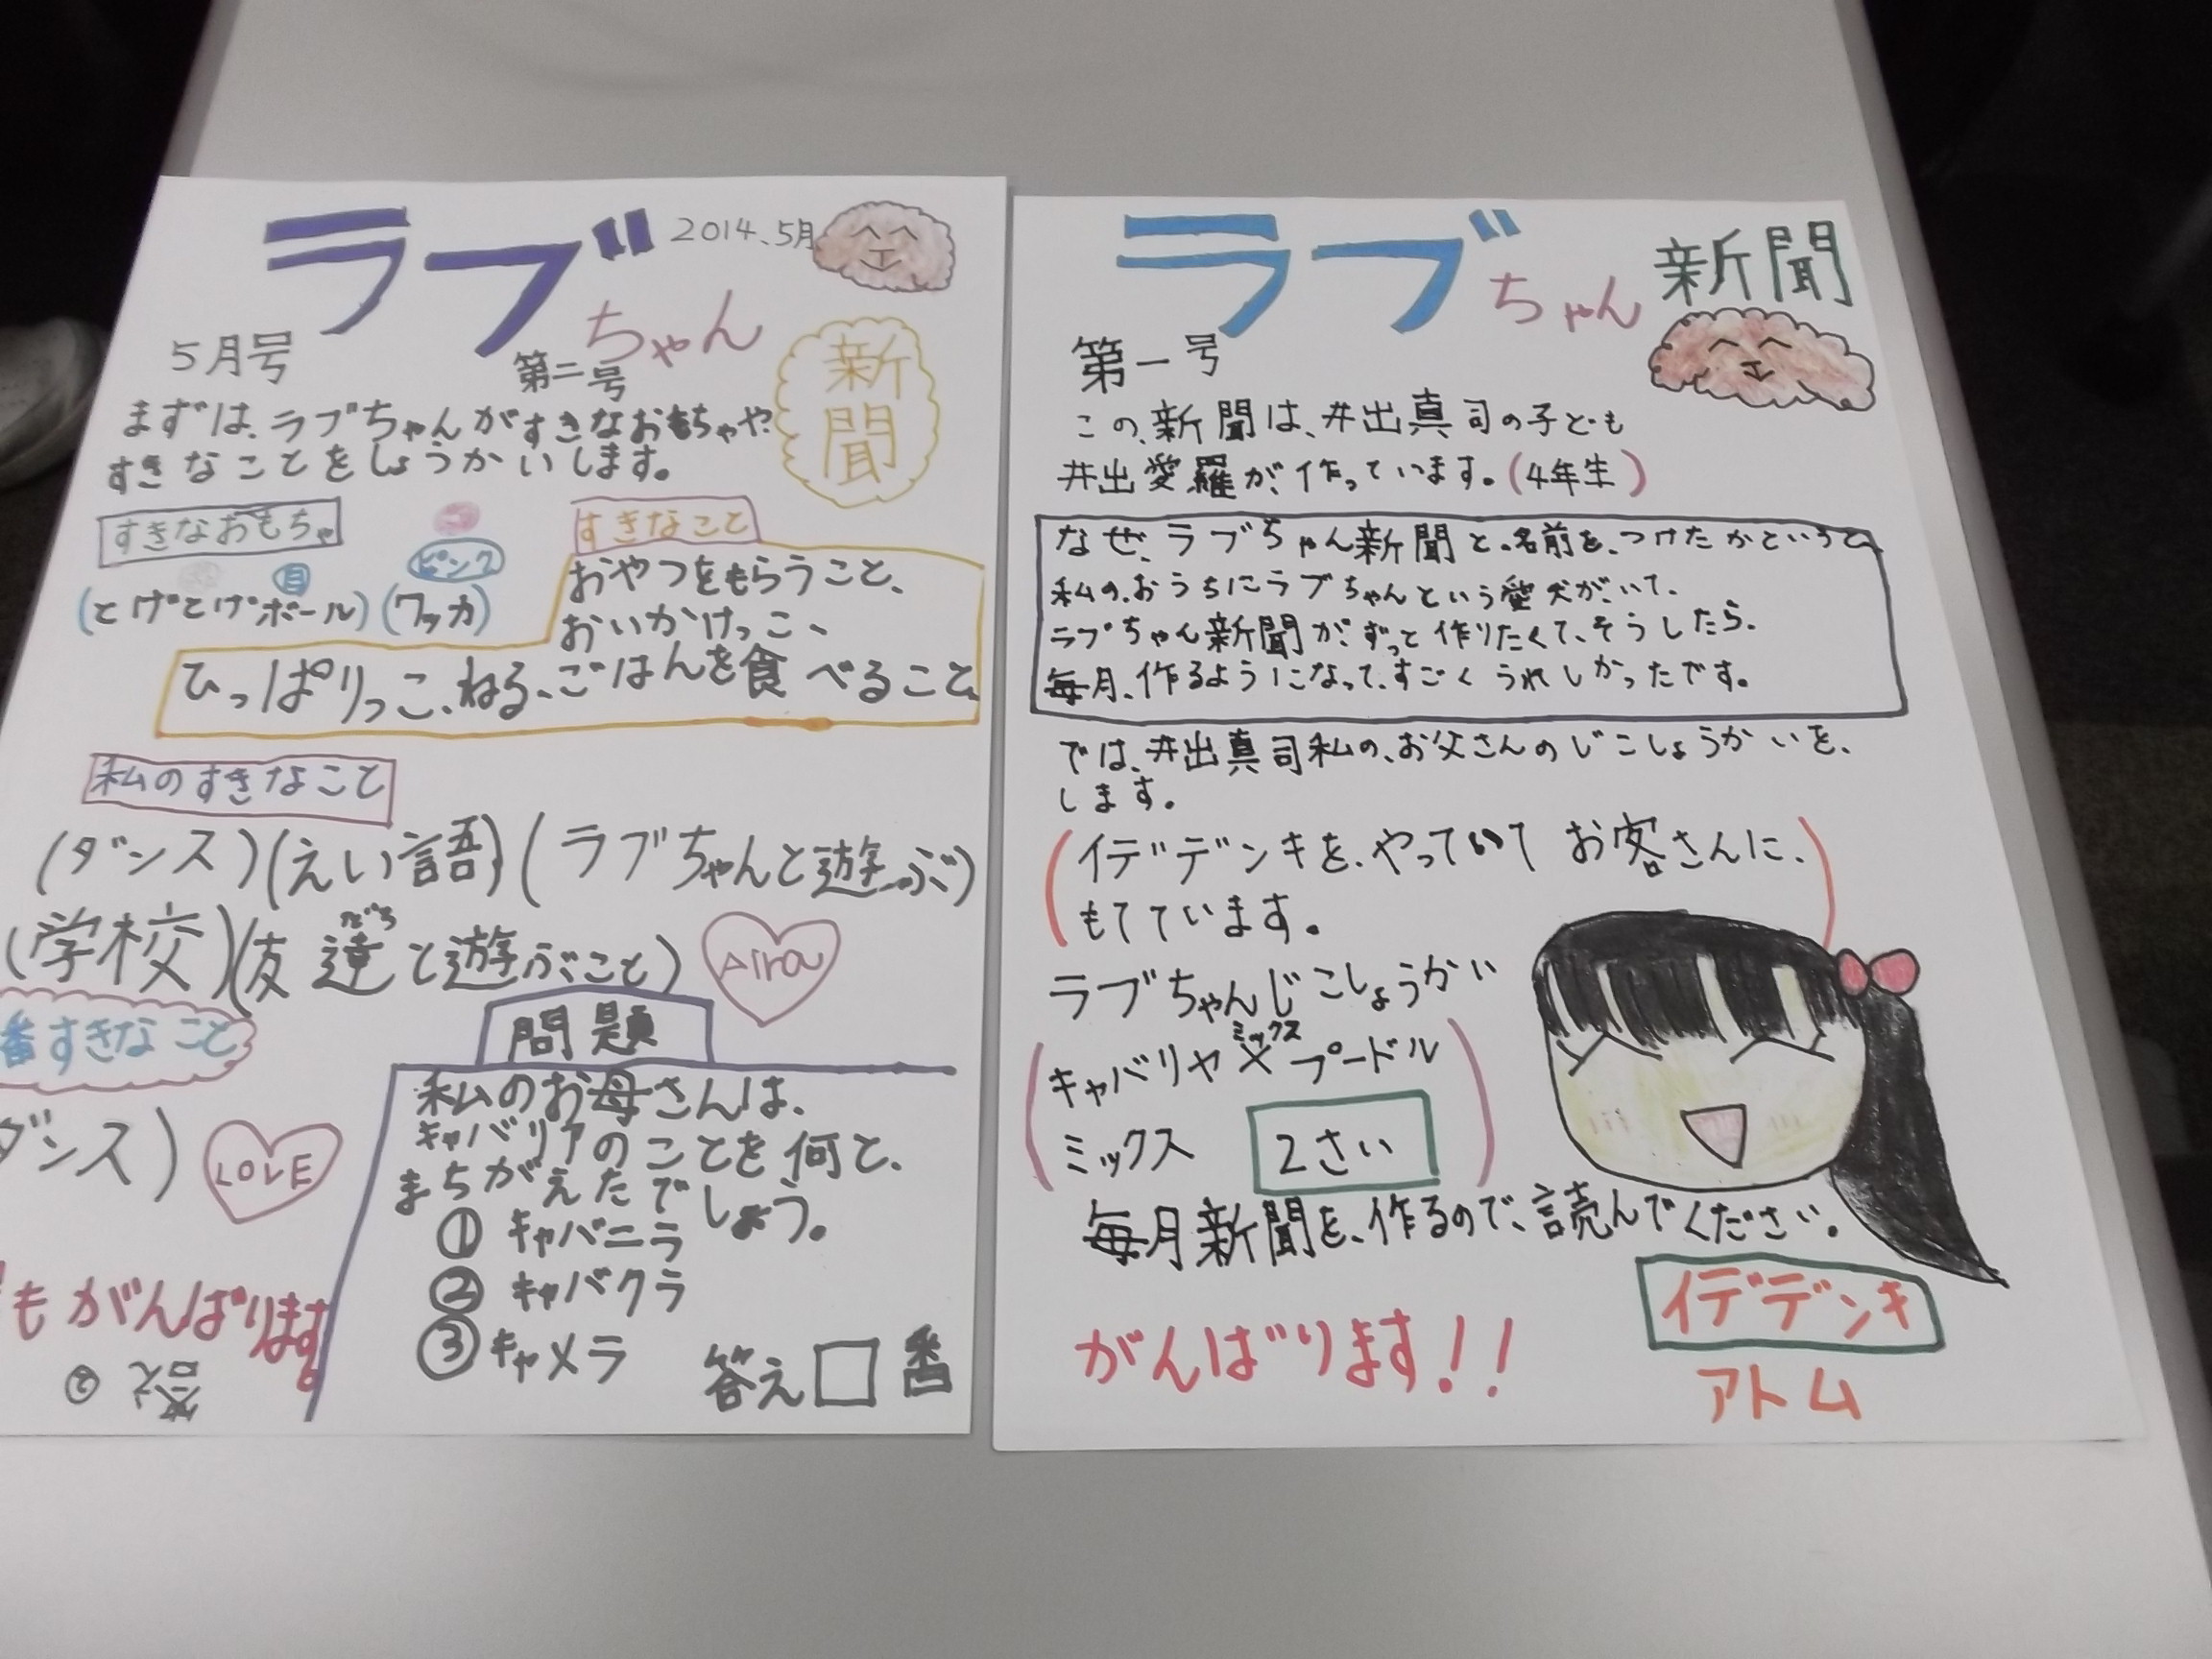 ラブちゃん
2014.5月
新聞
5月号
第二号
まずは、ラブちゃんがすきなおもちゃや
すきなことをしょうかいします。
すきなおもちゃ
(とげとげボール)
白
ピンク
(ワッカ)
すきなこと
おやつをもらうこと、
おいかけっこ、
ひっぱりっこ、ねる、ごはんを食べること
私のすきなこと
(ダンス)(えい語)(ラブちゃんと遊ぶ)
(学校)(友達と遊ぶこと)
だち
Aira
番すきなこと
ダンス)
LOVE
もがんばります。
問題
私のお母さんは、
キャバリアのことを何と、
まちがえたでしょう。
① キャバニラ
② キャバクラ
③ キャメラ
答え□番
答え ②
ラブちゃん新聞
第一号
この、新聞は、井出真司の子ども
井出愛羅が、作っています。(4年生)
なぜ、ラブちゃん新聞と、名前を、つけたかというと、
私の、おうちにラブちゃんという愛犬が、いて、
ラブちゃん新聞が、ずっと作りたくて、そうしたら、
毎月、作るようになって、すごくうれしかったです。
では、井出真司私の、お父さんのじこしょうかいを、
します。
(イデデンキを、やっていてお客さんに、
もてています。)
ラブちゃんじこしょうかい
ミックス
(キャバリヤ×プードル
ミックス 2さい)
毎月新聞を、作るので、読んでください。
がんばります!!
イデデンキ
アトム